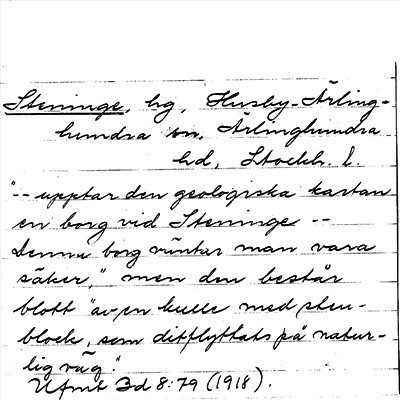 Steninge, hg, Husby-Ärling-
hundra sn, Ärlinghundra
hd, Stockh. l.
"-- upptar den geologiska kartan
en borg vid Steninge --
Denna borg väntar man vara
säker," men den består
blott "av en kulle med sten-
block, som ditflyttats på natur-
lig väg."
Ufmt Bd 8:79 (1918).